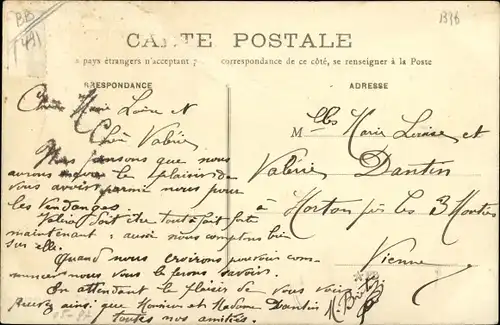 BB
B36
CARTE POSTALE
pays étrangers n'acceptent correspondance de ce côté, se renseigner à la Poste
RRESPONDANCE
ADRESSE
Chère Marie Louise et
Chère Valérie
Nous pensons que nous
aurons le plaisir de
vous avoir parmi nous pour
les Vendanges
Valérie doit être tout à fait forte
maintenant : aussi nous comptons bien
sur elle.
Quand nous croirons pouvoir com-
mencer nous vous le ferons savoir.
En attendant le plaisir de vous voir
ainsi que Monsieur et Madame Dantin
toutes nos amitiés.
Mlles Marie Louise et
Valérie Dantin
à Morton près les 3 Moutiers
Vienne